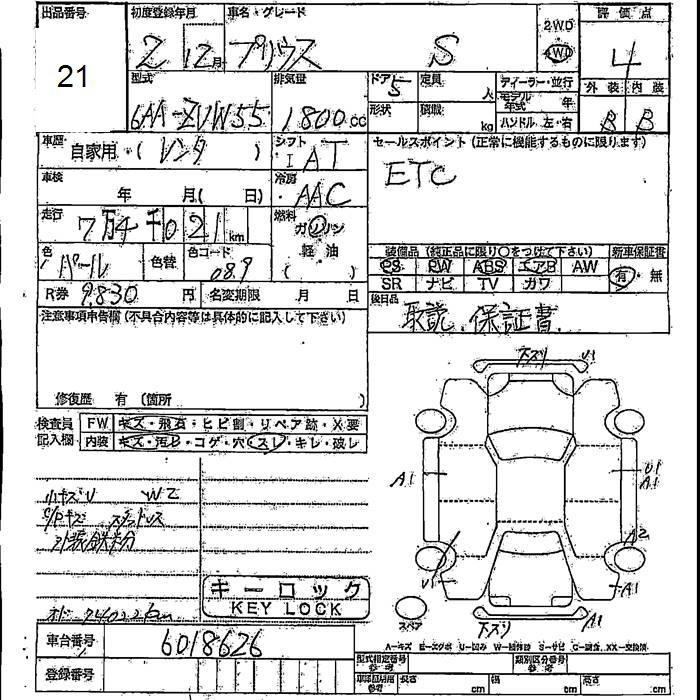 出品番号 21
初度登録年月 2年 12月
車名・グレード プリウス S
2WD 4WD
評価点 4
外装 内装
B B
型式 6AA-ZVW55
排気量 1800cc
ドア 5 定員 人
形状 積載 kg
ディーラー・並行
モデル年式 年
ハンドル 左・右
車歴 自家用・( レンタ )
シフト I AT
セールスポイント (正常に機能するものに限ります)
ETC
車検 年 月( 日)
冷房 AAC
走行 7万4千021km
燃料 ガソリン 軽油 ( )
色 パール 色替 色コード 089
装備品 (純正品に限り○をつけて下さい) 新車保証書
PS PW ABS エアB AW 有・無
SR ナビ TV カワ
R券 9830円 名変期限 月 日
後日品 取説.保証書.
注意事項申告欄 (不具合内容等は具体的に記入して下さい)
修復歴 有 (箇所 )
検査員記入欄 FW キズ・飛石・ヒビ割・リペア跡・X要
内装 キズ・汚レ・コゲ・穴・スレ・キレ・破レ
小キズU W2
下スリ U1
A1 U1 A1
A2
U1 A1
キーロック
KEY LOCK
スペア 下スリ A1
A-キズ E-エクボ U-凹み W-補修跡 S-サビ C-腐食、XX-交換済
車台番号 6018626
登録番号
型式指定番号 参考 類別区分番号 参考
長さ cm 幅 cm 高さ cm